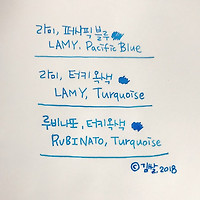 라미, 퍼시픽 블루
LAMY, Pacific Blue
라미, 터키옥색
LAMY, Turquoise
루비나또, 터키옥색
RUBINATO, Turquoise
©김잘, 2018